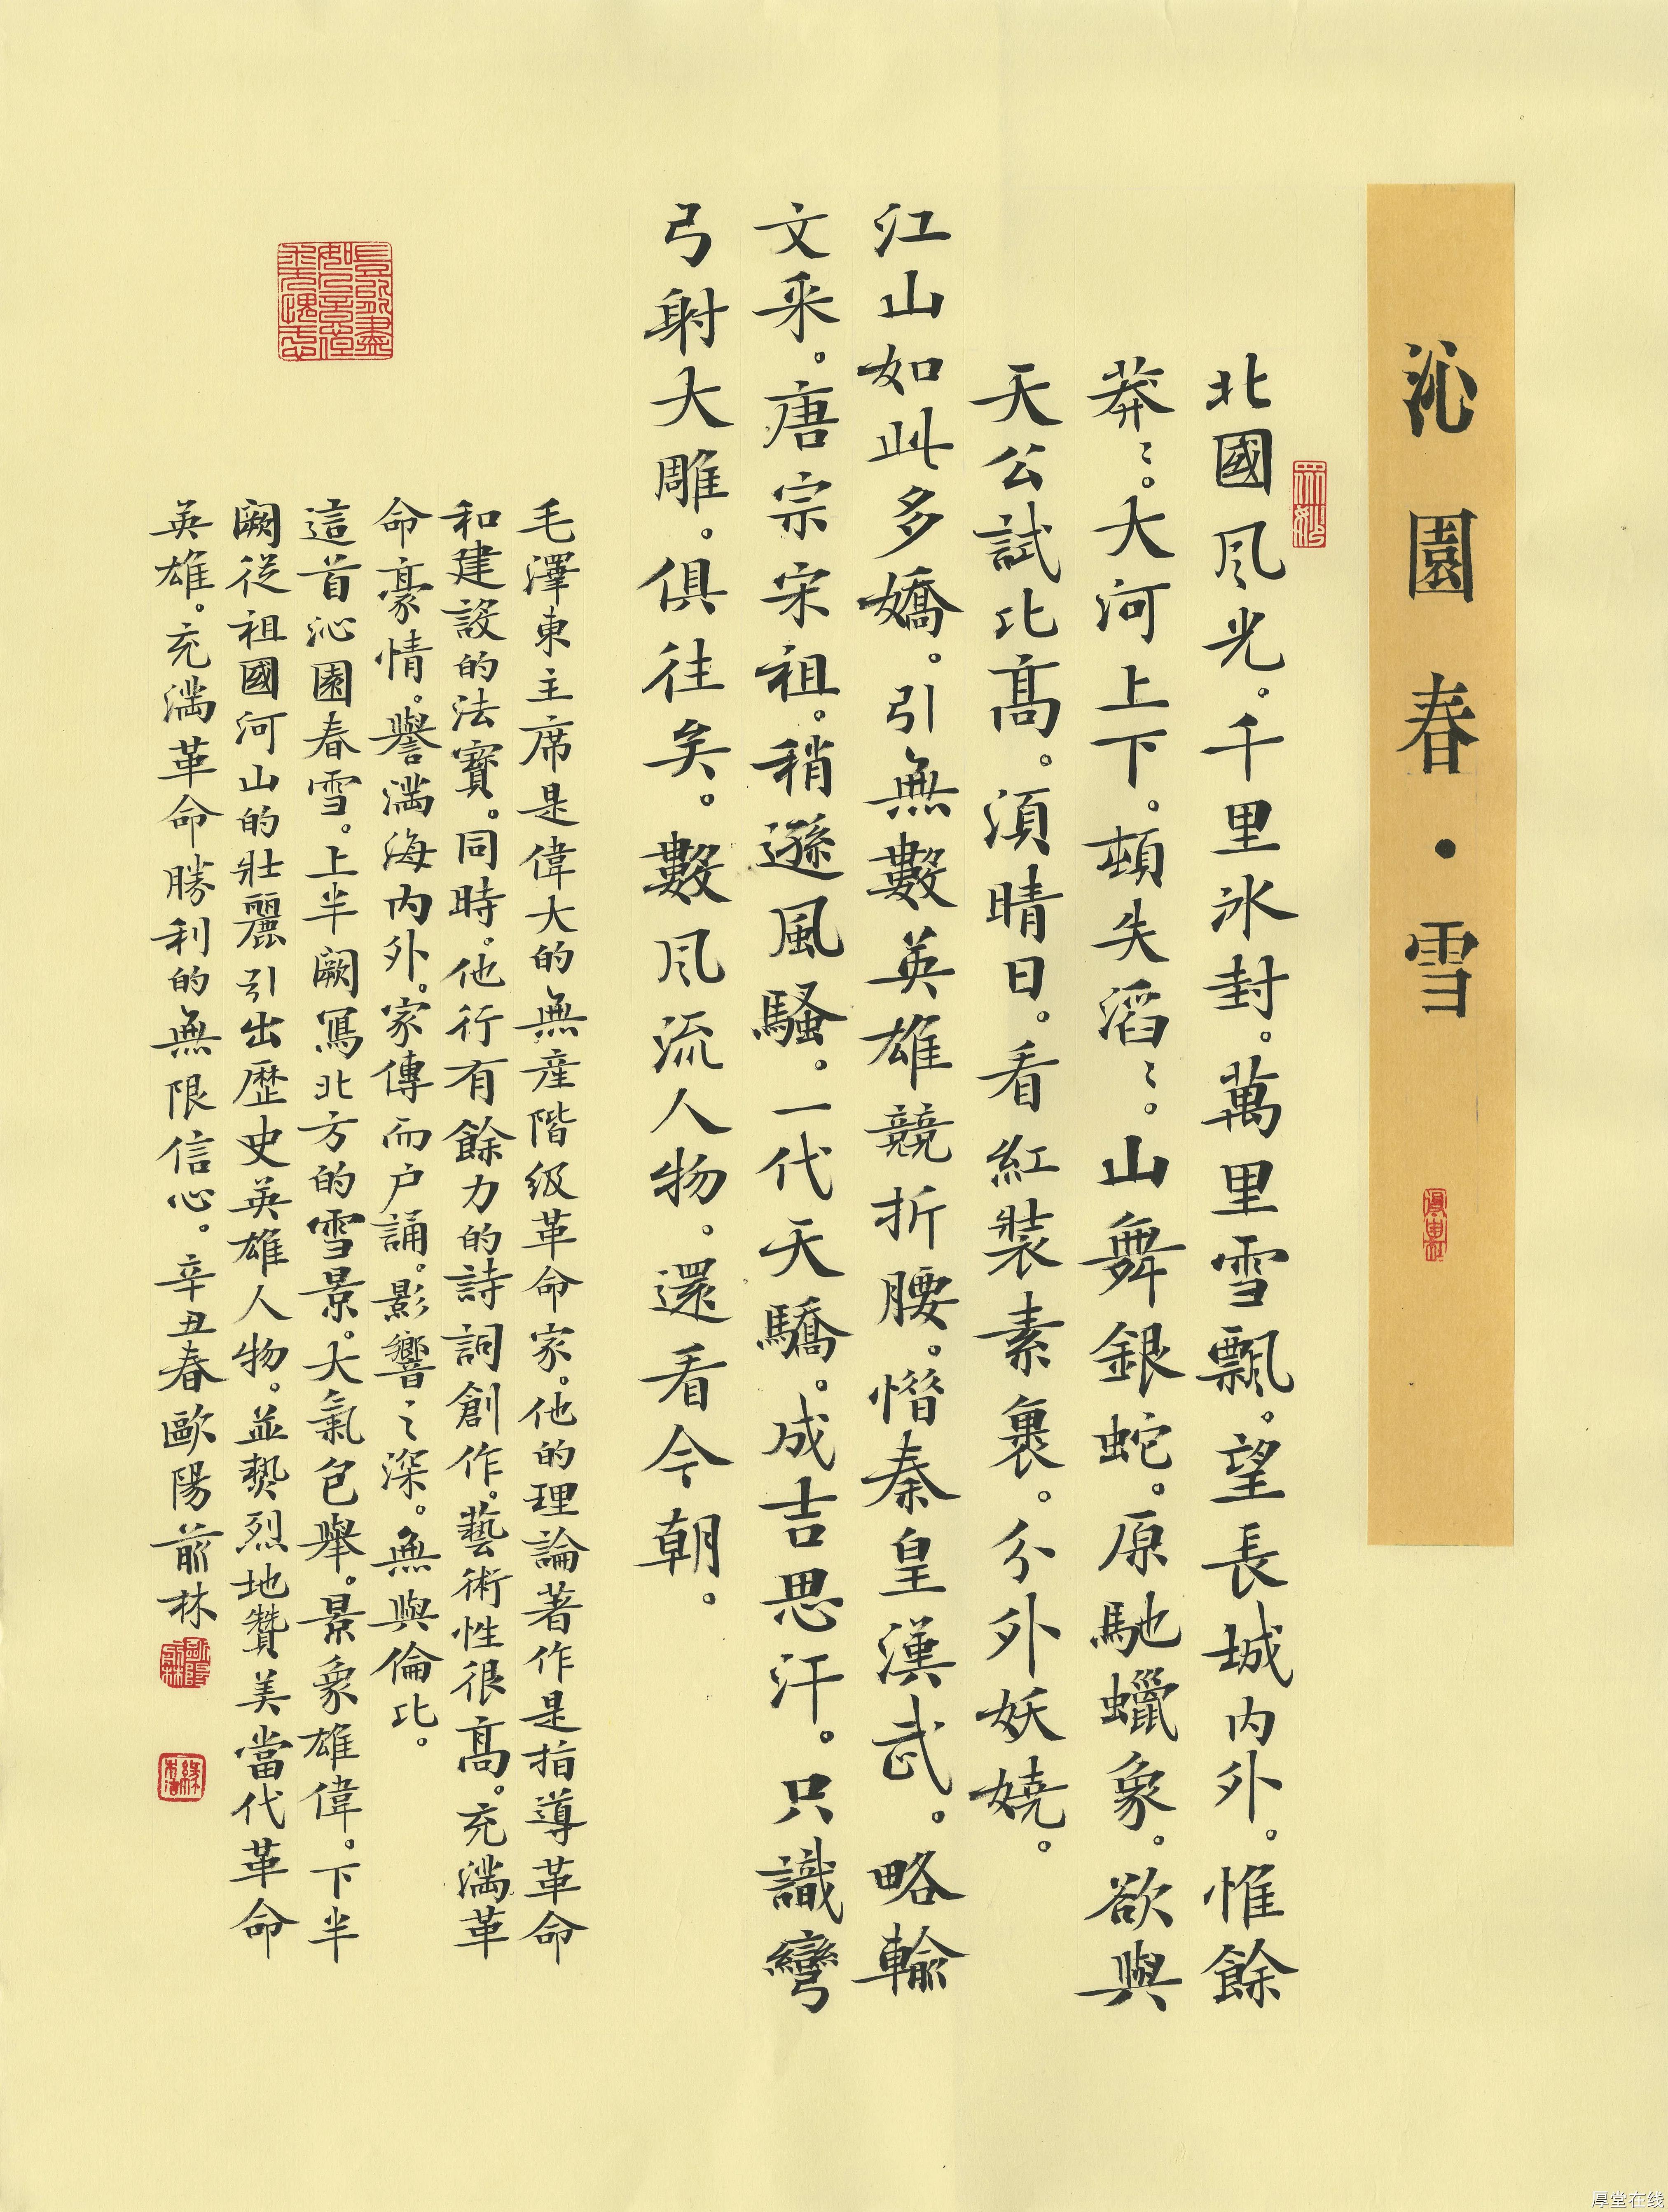 沁園春·雪
北國風光。千里冰封。萬里雪飄。望長城内外。惟餘
莽〻。大河上下。頓失滔〻。山舞銀蛇。原馳蠟象。欲與
天公試比高。須晴日。看紅裝素裹。分外妖嬈。
江山如此多嬌。引無數英雄競折腰。惜秦皇漢武。略輸
文采。唐宗宋祖。稍遜風騷。一代天驕。成吉思汗。只識彎
弓射大雕。俱往矣。數風流人物。還看今朝。
毛澤東主席是偉大的無産階级革命家。他的理論著作是指導革命
和建設的法寶。同時。他行有餘力的詩詞創作。藝術性很高。充滿革
命豪情。譽滿海内外。家傳而户誦。影響之深。無與倫比。
這首沁園春雪。上半闕寫北方的雪景。大氣包舉。景象雄偉。下半
闕從祖國河山的壯麗引出歷史英雄人物。並熱烈地贊美當代革命
英雄。充滿革命勝利的無限信心。辛丑春歐陽前林
厚堂在线